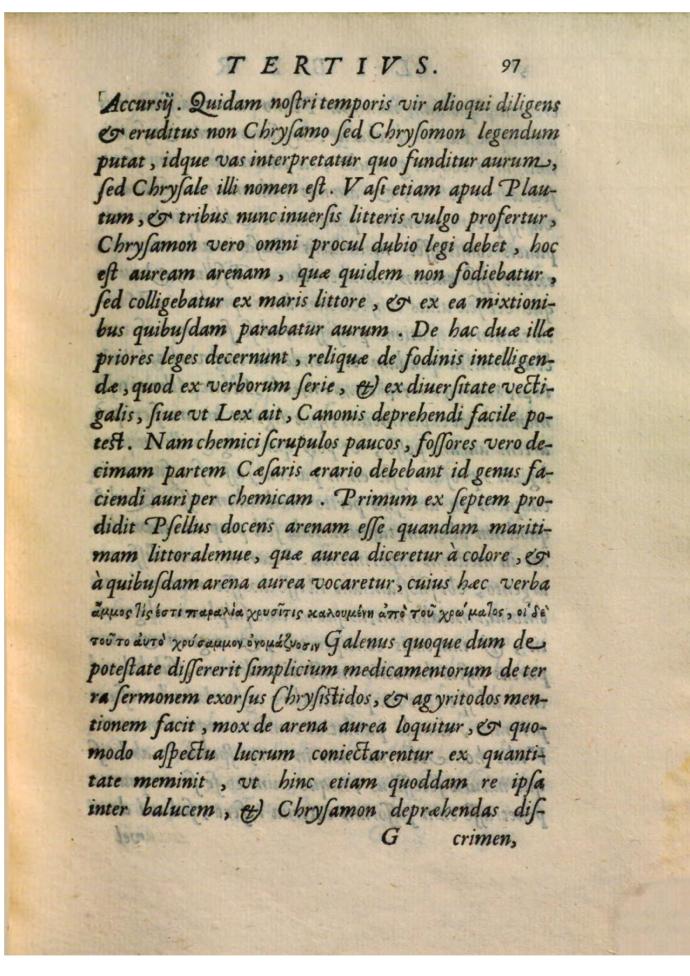 TERTIVS. 97
Accursij. Quidam noſtri temporis vir alioqui diligens
& eruditus non Chryſamo ſed Chryſomon legendum
putat, idque vas interpretatur quo funditur aurum,
ſed Chryſale illi nomen eſt. Vaſi etiam apud Plau-
tum, & tribus nunc inuerſis litteris vulgo profertur,
Chryſamon vero omni procul dubio legi debet, hoc
eſt auream arenam, quæ quidem non fodiebatur,
ſed colligebatur ex maris littore, & ex ea mixtioni-
bus quibuſdam parabatur aurum. De hac duæ illæ
priores leges decernunt, reliquæ de fodinis intelligen-
dæ, quod ex verborum ſerie, & ex diuerſitate vecti-
galis, ſiue vt Lex ait, Canonis deprehendi facile po-
teſt. Nam chemici ſcrupulos paucos, foſſores vero de-
cimam partem Cæſaris ærario debebant id genus fa-
ciendi auri per chemicam. Primum ex ſeptem pro-
didit Pſellus docens arenam eſſe quandam mariti-
mam littoralemue, quæ aurea diceretur à colore, &
à quibuſdam arena aurea vocaretur, cuius hæc verba
ἄμμος τὶς ἐστι παραλία χρυσῖτις καλουμένη ἀπὸ τοῦ χρώματος, οἱ δὲ
τοῦτο αὐτὸ χρύσαμμον ὀνομάζουσιν Galenus quoque dum de
poteſtate diſſererit ſimplicium medicamentorum de ter
ra ſermonem exorſus Chryſiſtidos, & agyritodos men-
tionem facit, mox de arena aurea loquitur, & quo-
modo aſpectu lucrum coniectarentur ex quanti-
tate meminit, vt hinc etiam quoddam re ipſa
inter balucem, & Chryſamon depræhendas diſ-
G crimen,